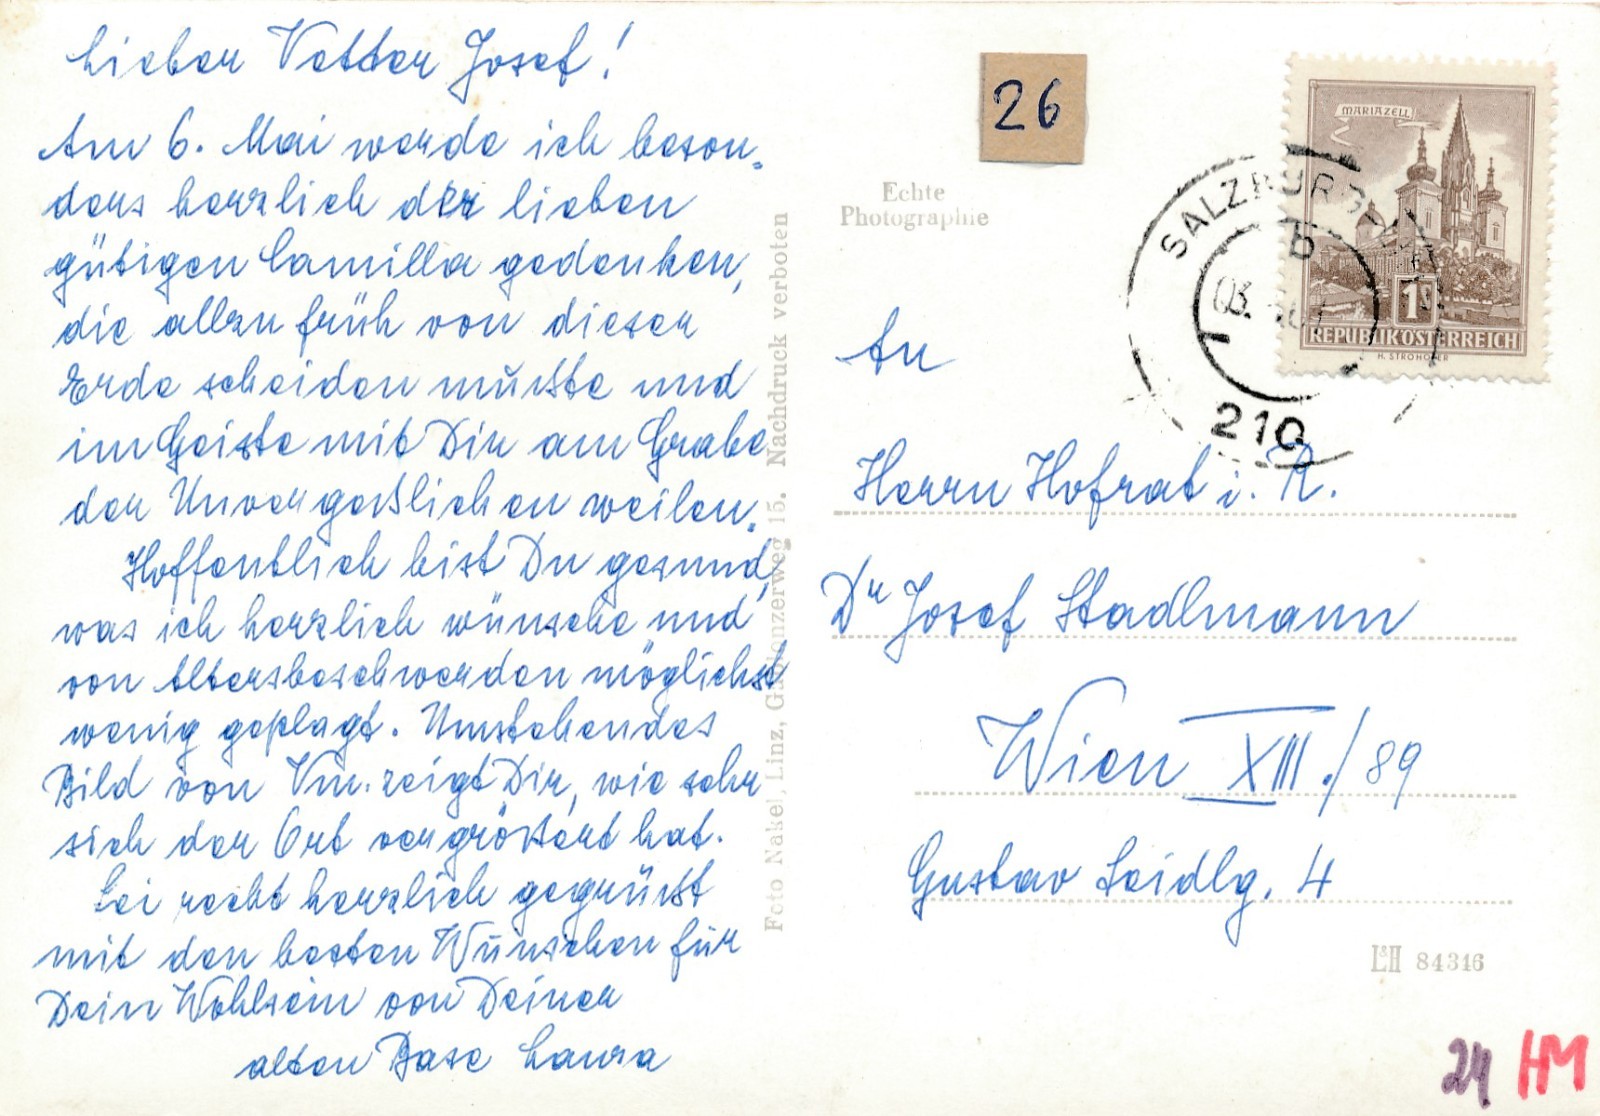 Lieber Vetter Josef!
Am 6. Mai werde ich beson-
ders herzlich der lieben
gütigen Camilla gedenken,
die allzu früh von dieser
Erde scheiden mußte und
im Geiste mit Dir am Grabe
der Unvergeßlichen weilen.
Hoffentlich bist Du gesund,
was ich herzlich wünsche und
von Altersbeschwerden möglichst
wenig geplagt. Umstehendes
Bild von Vm. zeigt Dir, wie sehr
sich der Ort vergrößert hat.
Sei recht herzlich gegrüßt
mit den besten Wünschen für
Dein Wohlsein von Deiner
alten Base Laura
Foto Nakel, Linz, Gablonzerweg 15. Nachdruck verboten
26
Echte
Photographie
MARIAZELL
1 S
REPUBLIK ÖSTERREICH
H. STROHOFER
SALZBURG
b
03.
210
An
Herrn Hofrat i. R.
Dr Josef Stadlmann
Wien XIII./89
Gustav Seidlg. 4
L&H 84316
24 HM